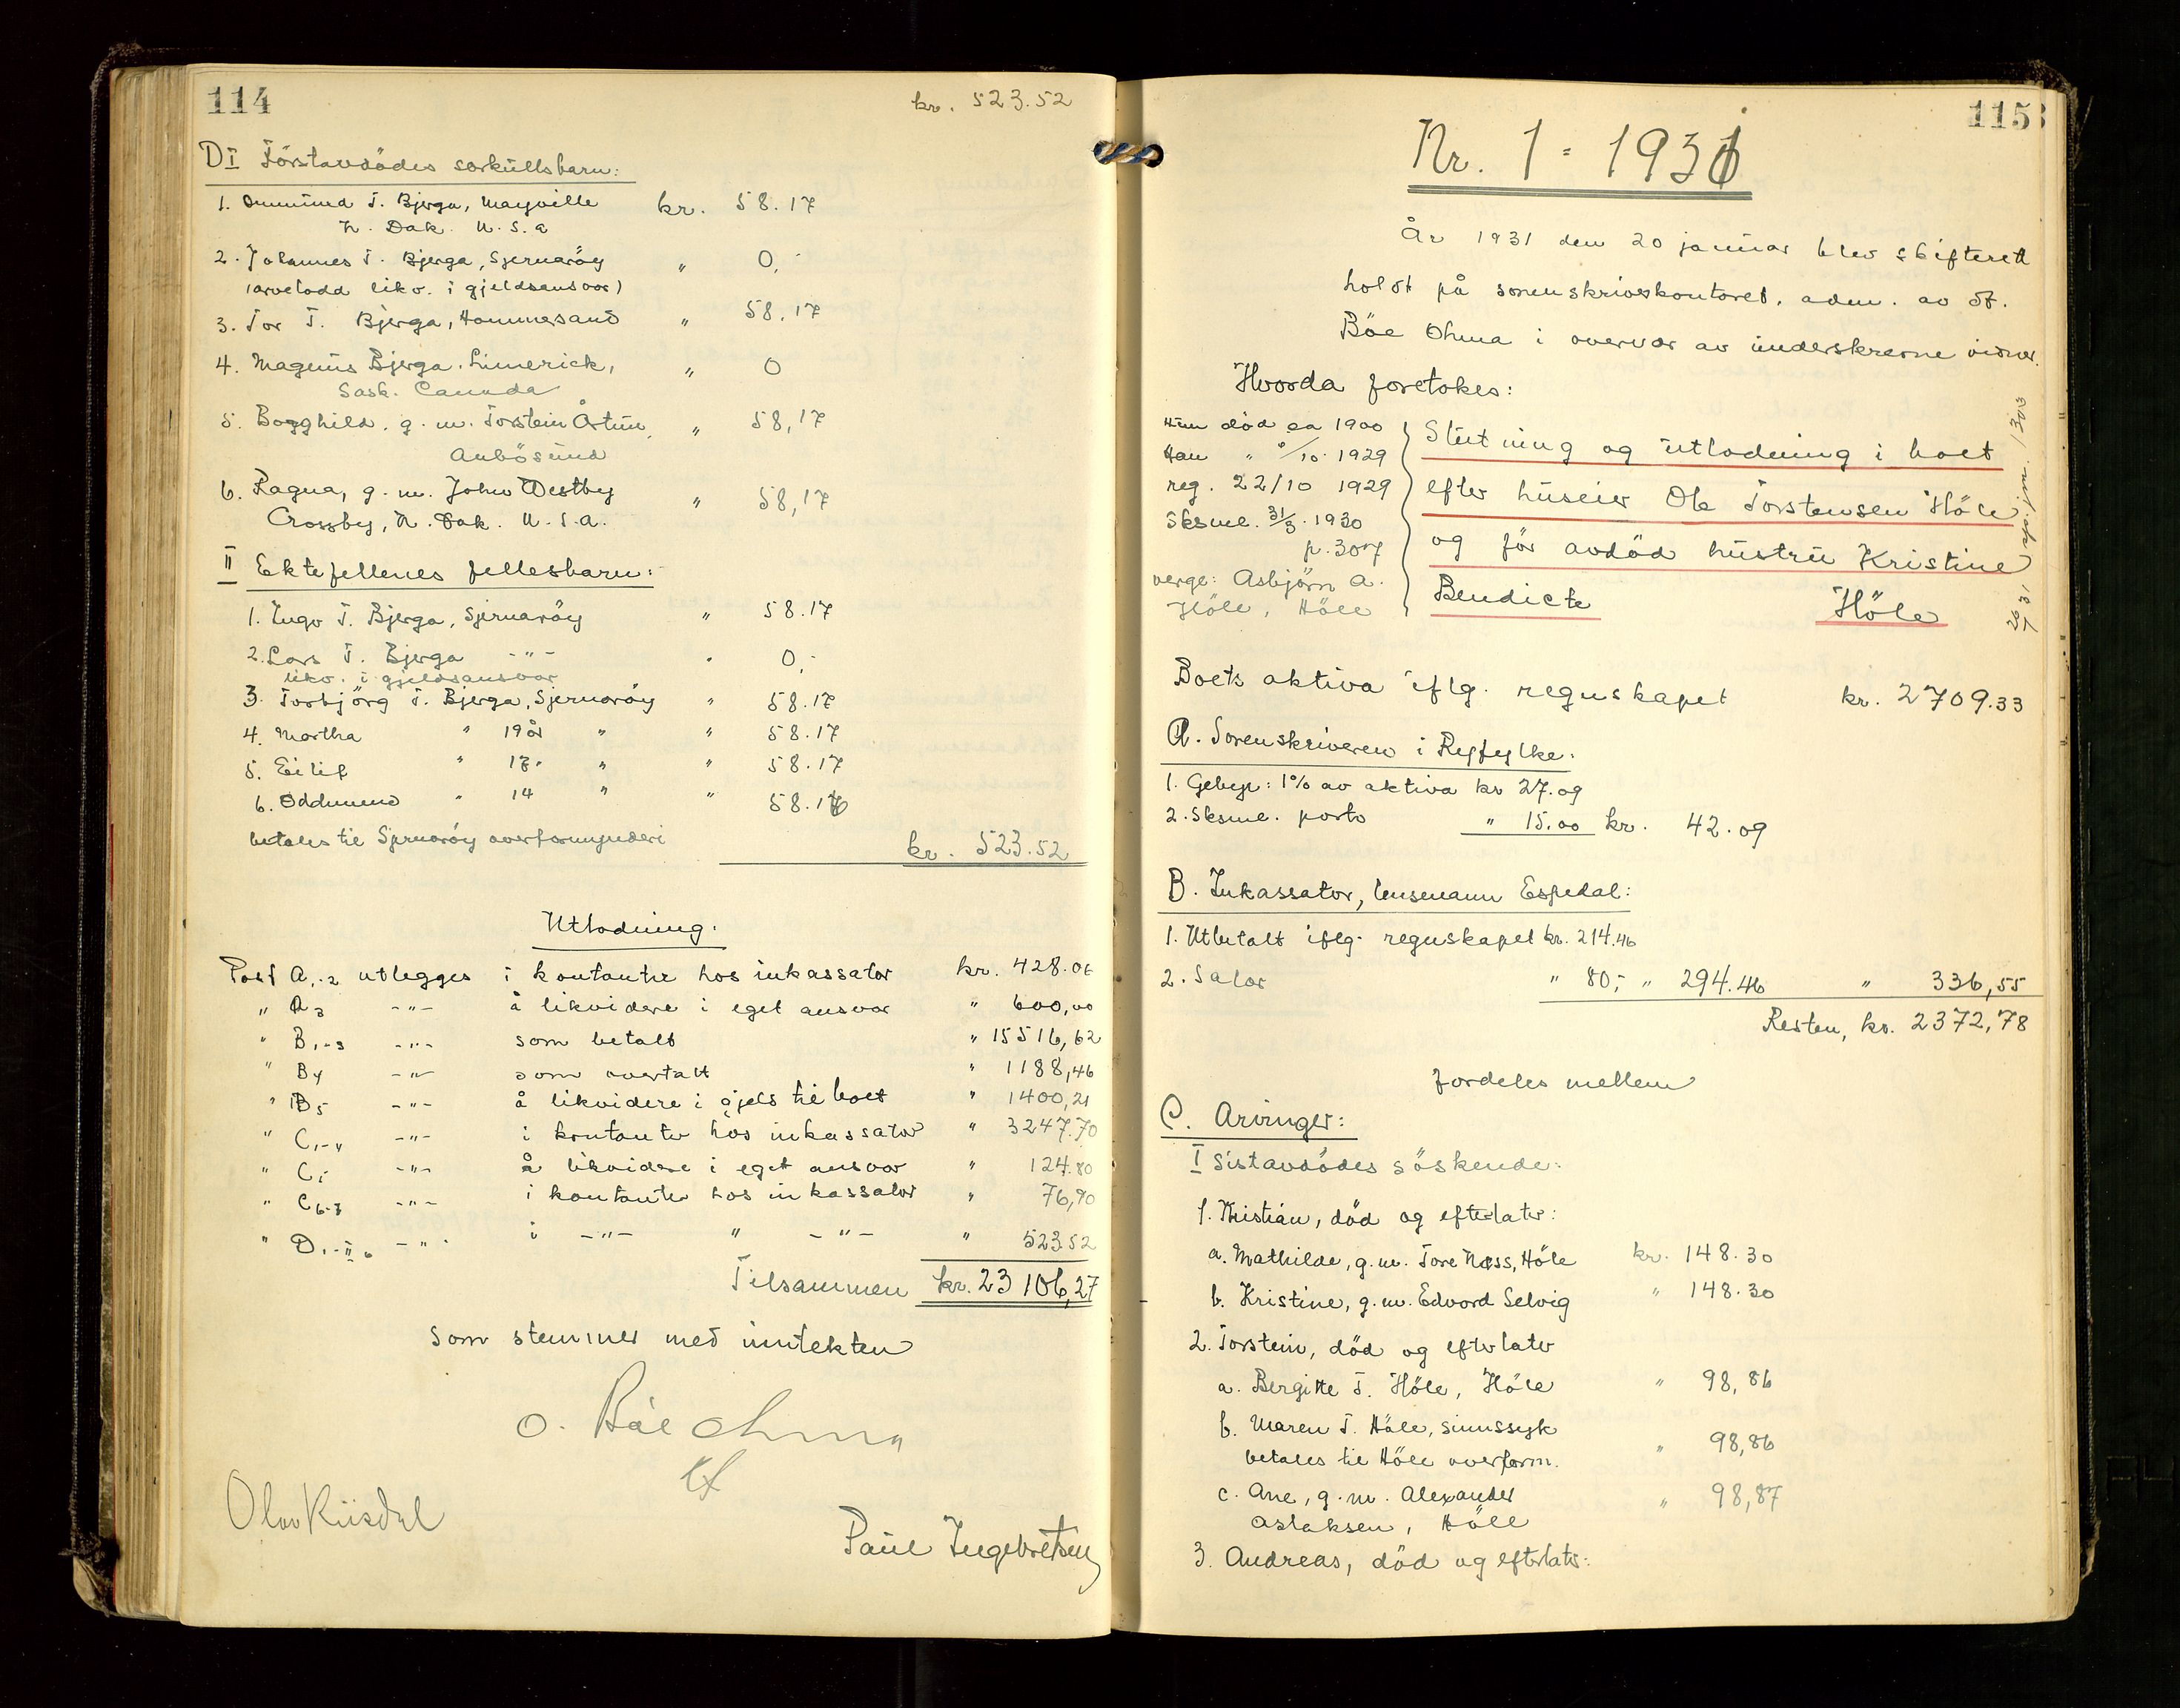 114
kr. 523.52
D I Förstavdödes særkullsbarn:
1. Ommund T. Bjerga, Mayville kr. 58.17
N. Dak. U.S.a
2. Johannes T. Bjerga, Sjernaröy " 0,-
(arvelodd likv. i gjeldsansvar)
3. Tor T. Bjerga, Hommersand " 58.17
4. Magnus Bjerga. Limerick, " 0
Sask. Canada
5. Borghild, g.m. Torstein Årtun, " 58,17
Aubösund
6. Ragna, g.m. John Westby " 58,17
Crossby, N. Dak. U.S.a.
II Ektefellenes fellesbarn:
1. Inga T. Bjerga, Sjernaröy " 58.17
2. Lars T. Bjerga -"- " 0,-
likv. i gjeldsansvar
3. Torbjörg T. Bjerga, Sjernaröy " 58.17
4. Martha " 19 år " " 58.17
5. Eilif " 17 " " " 58.17
6. Oddmund " 14 " " 58.16
betales til Sjernaröy overformynderi
kr. 523.52
Utlodning.
Post A1-2 utlegges i kontanter hos inkassator kr. 428.06
" A3 -"- å likvidere i eget ansvar " 600,00
" B1-3 -"- som betalt " 15516,62
" B4 -"- som overtatt " 1188,46
" B5 -"- å likvidere i gjeld til boet " 1400,21
" C1-4 -"- i kontanter hos inkassator " 3247.70
" C5 -"- å likvidere i eget ansvar " 124.80
" C6-7 -"- i kontanter hos inkassator " 76,90
" D1-II6 -"- i -"- " -"- " 523.52
Tilsammen kr. 23 106,27
som stemmer med inntekten
O. Böe Ohma
Olav Riisdal
Paul Ingebretsen
115
Nr. 1 - 1931
År 1931 den 20 januar blev skifterett
holdt på sorenskriverkontoret. adm. av df.
Böe Ohma i overvær av underskrevne vidner.
Hvorda foretokes:
Hun död ca 1900
Han " /10. 1929
reg. 22/10 1929
Sksml. 31/3. 1930
p. 307
verge: Asbjörn A.
Höle, Höle
Slutning og utlodning i boet
efter huseier Ole Torstensen Höle
og för avdöd hustru Kristine
Bendicte Höle
Boets aktiva iflg. regnskapet kr. 2709.33
A. Sorenskriveren i Ryfylke.
1. Gebyr: 1% av aktiva kr 27.09
2. Sksml. porto " 15.00 kr. 42.09
B. Inkassator, lensmann Espedal:
1. Utbetalt iflg. regnskapet kr. 214.46
2. Salær " 80,- " 294.46 " 336,55
Resten, kr. 2372,78
fordeles mellem
C. Arvinger:
I Sistavdödes söskende:
1. Kristian, död og efterlater:
a. Mathilde, g.m. Tore Næss, Höle kr. 148.30
b. Kristine, g.m. Edvard Selvig " 148.30
2. Torstein, död og efterlater
a. Bergitte T. Höle, Höle " 98,86
b. Maren T. Höle, sinnssyk
betales til Höle overform. " 98,86
c. Ane, g.m. Alexander " 98,87
Aslaksen, Höle
3. Andreas, död og efterlater: